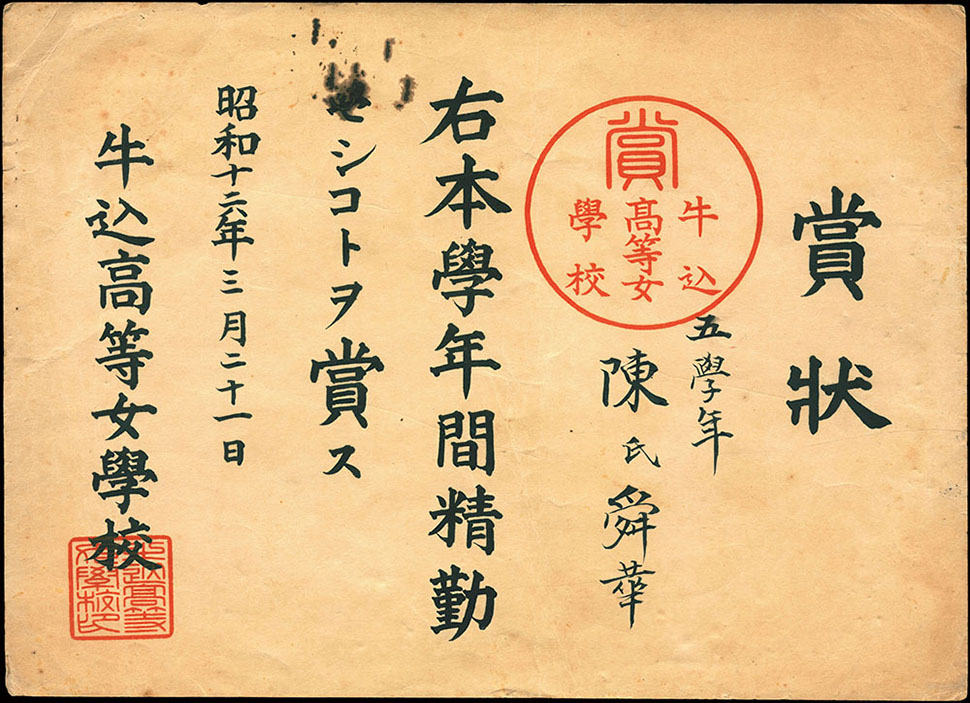 賞狀
賞
牛込
髙等女
學校
五學年
陳氏舜華
右本學年間精勤
セシコトヲ賞ス
昭和十六年三月二十一日
牛込高等女學校
牛込高等
女學校印